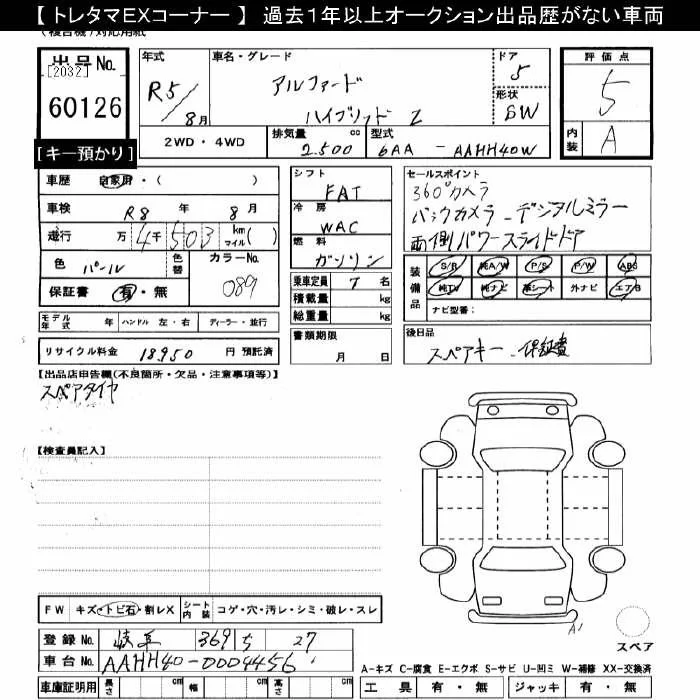 【 トレタマEXコーナー 】 過去１年以上オークション出品歴がない車両
出品No.
[2032]
60126
[キー預かり]
年式
R5/8月
車名・グレード
アルファード
ハイブリッド Z
ドア
5
形状
SW
評価点
5
内装
A
2WD ・ 4WD
排気量 cc
2.500
型式
6AA - AAHH40W
車歴 自家用・( )
車検 R8年 8月
走行 万4千503 km マイル( )
色 パール
色替
カラーNo.
089
保証書 有・無
シフト
FAT
冷房
WAC
燃料
ガソリン
乗車定員 7名
積載量 kg
総重量 kg
セールスポイント
360°カメラ
バックカメラ - デジタルミラー
両側パワースライドドア
装備品
S/R 純A/W P/S P/W ABS
純TV 純ナビ 革シート 外ナビ エアB
ナビ型番:
モデル年式 年 ハンドル 左・右 ディーラー・並行
リサイクル料金 18950 円 預託済
書類期限
月 日
後日品
スペアキー - 保証書
【出品店申告欄(不良箇所・欠品・注意事項等)】
スペアタイヤ
【検査員記入】
FW キズ・トビ石・割レX シート内装 コゲ・穴・汚レ・シミ・破レ・スレ
A1
スペア
登録No. 岐阜 369 ち 27
車台No. AAHH40-0004456
A-キズ C-腐食 E-エクボ S-サビ U-凹ミ W-補修 XX-交換済
車庫証明用 長さ cm 幅 cm 高さ cm
工具 有・無 ジャッキ 有・無